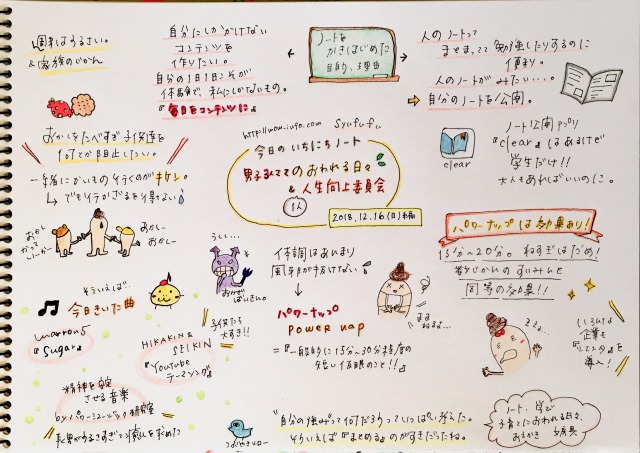 週末はうるさい。
&家族のじかん
自分にしかかけない
コンテンツを
作りたい。
自分の1日1日こそが
体験で、私にしかないもの。
『毎日をコンテンツに』
ノートを
かきはじめた
目的、理由
人のノートって
まとまってて勉強したりするのに
便利。
人のノートがみたい・・・。
自分のノートを公開。
おかしをたべすぎ子供達を
何とか阻止したい。
一緒にかいもの行くのがキケン。
でも行かざるを得ない
Syufufu
今日のいちにちノート
男子育てのおわれる日々
&人生向上委員会
1人
2018.12.16(日)
ノート公開アプリ
『clear』はあるけど
学生だけ!!
大人もあればいいのに。
clear
パワーナップは効果あり!
15分~20分。ねすぎはだめ!
同等の効果!!
おかし
かって
おかしー
おかしー
うしし…
おかぜ
ばいきん。
子供たち
大すき!!
体調はあいまり
風邪が抜けない
パワーナップ
POWER NAP
=『一般的に15分~30分程度の
短い仮眠のこと!!』
まる
ねるよ…
zzz…
いろんな
企業も
導入!
そういえば…
今日きいた曲
maroon5
『Sugar』
HIKAKIN&
SEIKIN
『Youtube
テーマソング』
精神を安定
させる音楽
byパワーミュージック研究室
長男がうるさすぎて癒しを求めた
つぶやきヒロー
"自分の強みって何だろうっていっぱい考えた。
そういえば『まとめる』のがすきだったね。
ノート、学び
子育てにおわれる日々、
おえかき 文房具